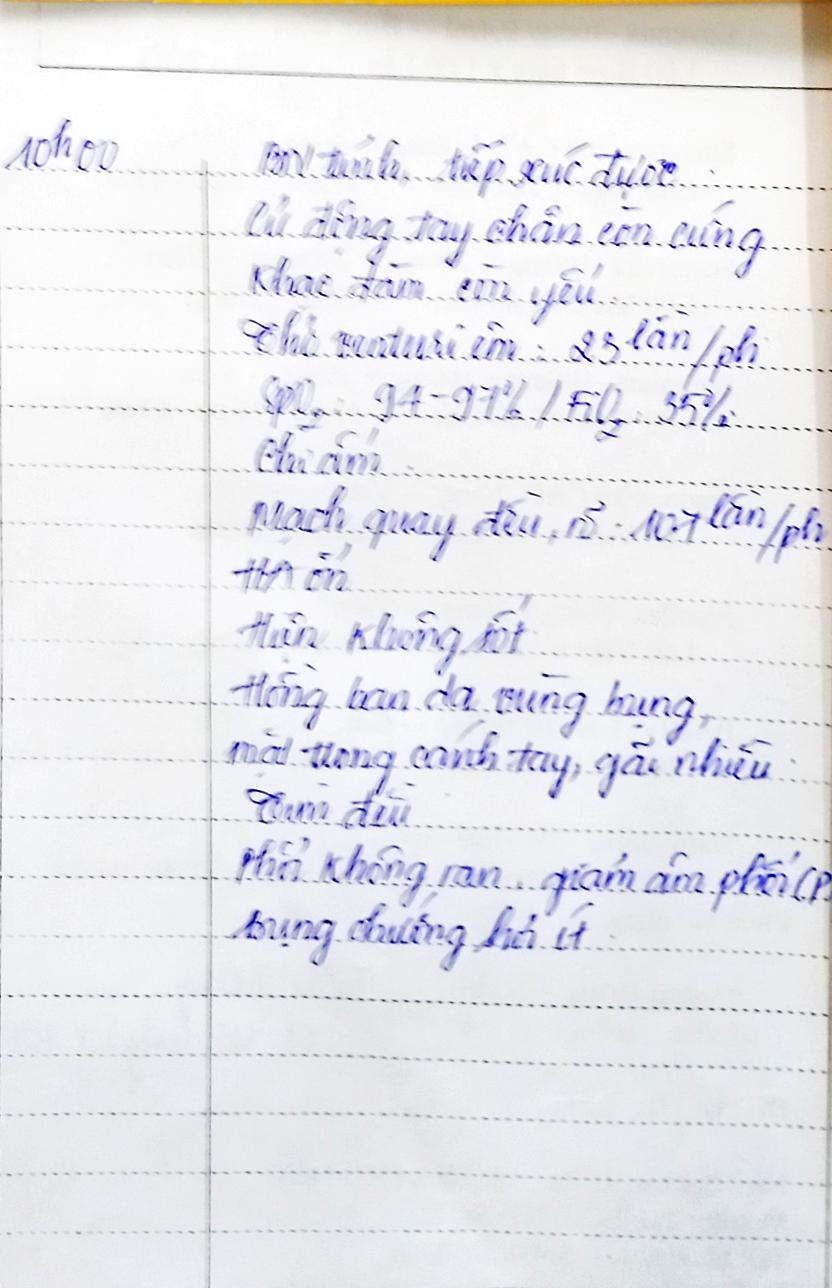 10h00
BN tỉnh, tiếp xúc được
Cử động tay chân còn cứng
Khạc đàm còn yếu
Thở venturi êm: 23 lần/ph
SpO2: 94-97% / FiO2: 35%
Chi ấm
Mạch quay đều, rõ: 107 lần/ph
HA ổn
Hiện không sốt
Hồng ban da vùng bụng,
mặt trong cánh tay, gãi nhiều
Tim đều
Phổi không ran. giảm âm phổi (P)
Bụng chướng hơi ít